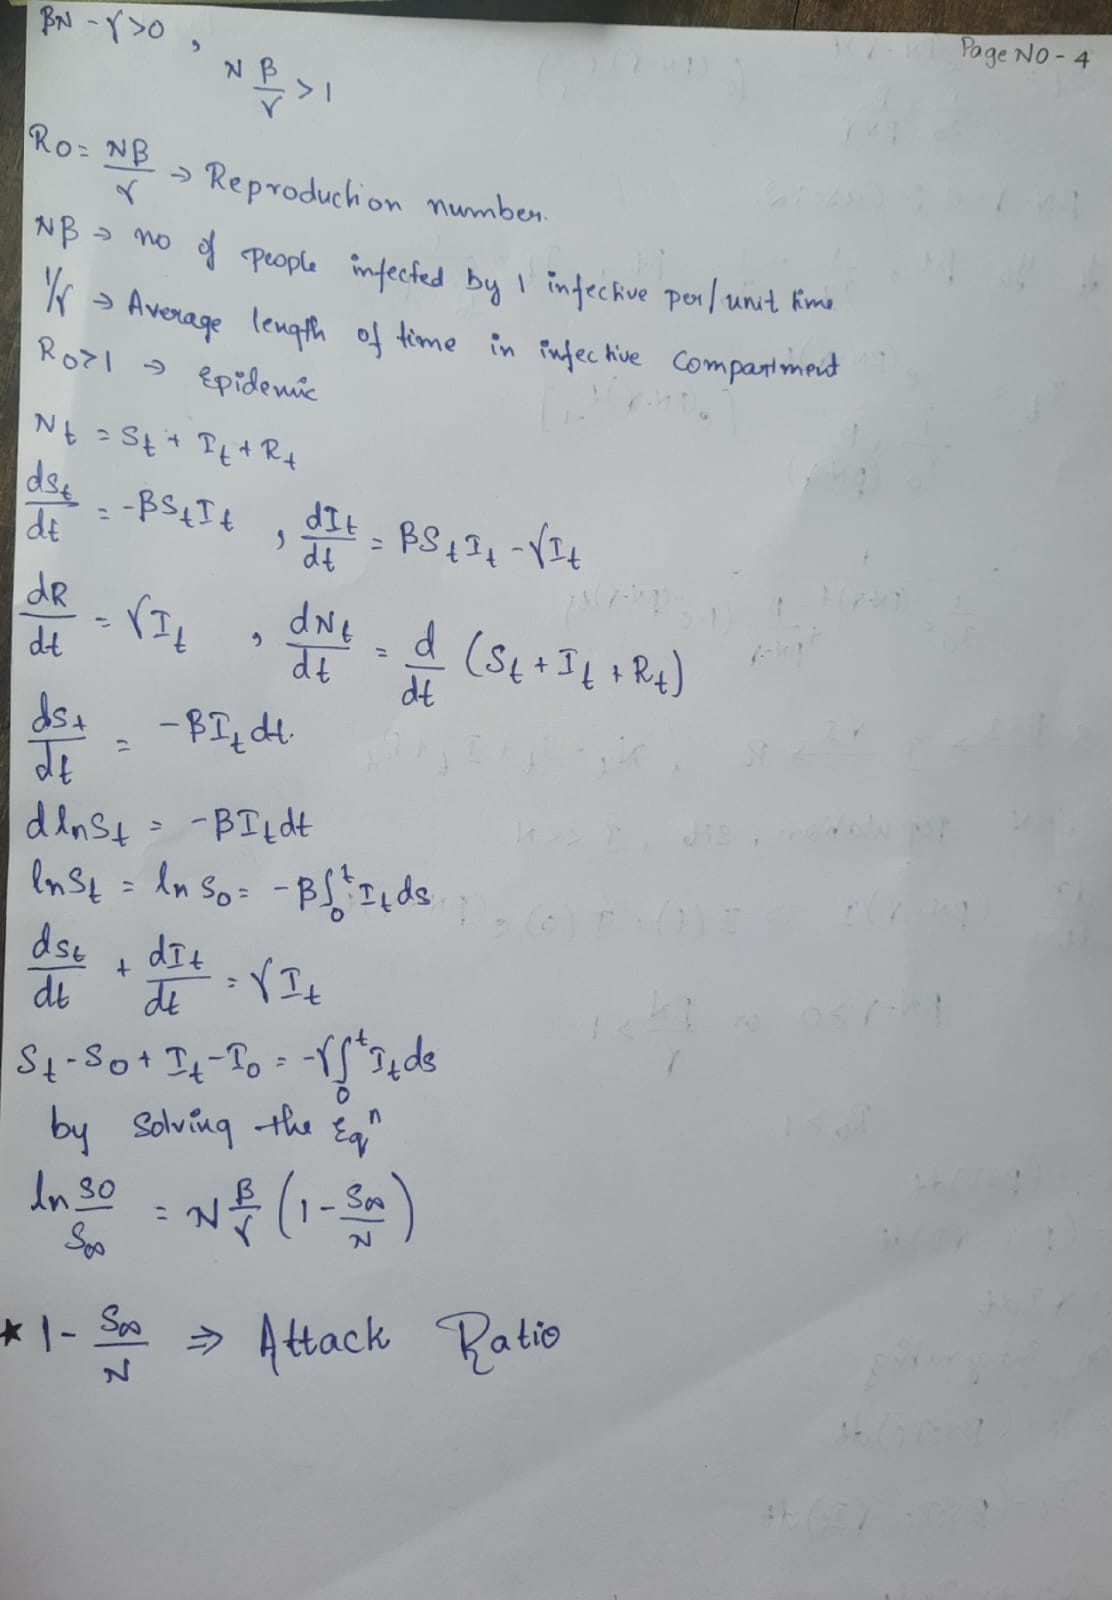 Page NO - 4
βN - γ > 0 , N β/γ > 1
R0 = Nβ/γ → Reproduction number.
Nβ → no of people infected by 1 infective per/unit time
1/γ → Average length of time in infective compartment
R0>1 → Epidemic
N_t = S_t + I_t + R_t
dS_t/dt = -βS_tI_t , dI_t/dt = βS_tI_t - γI_t
dR/dt = γI_t , dN_t/dt = d/dt (S_t + I_t + R_t)
dS_t/dt = -βI_t dt.
d lnS_t = -βI_t dt
lnS_t = ln S_0 = -β∫_0^t I_t ds
dS_t/dt + dI_t/dt = γI_t
S_t - S_0 + I_t - I_0 = -γ∫_0^t I_t ds
by solving the Eqⁿ
ln S0/S∞ = N β/γ (1 - S∞/N)
★ 1 - S∞/N ⇒ Attack Ratio